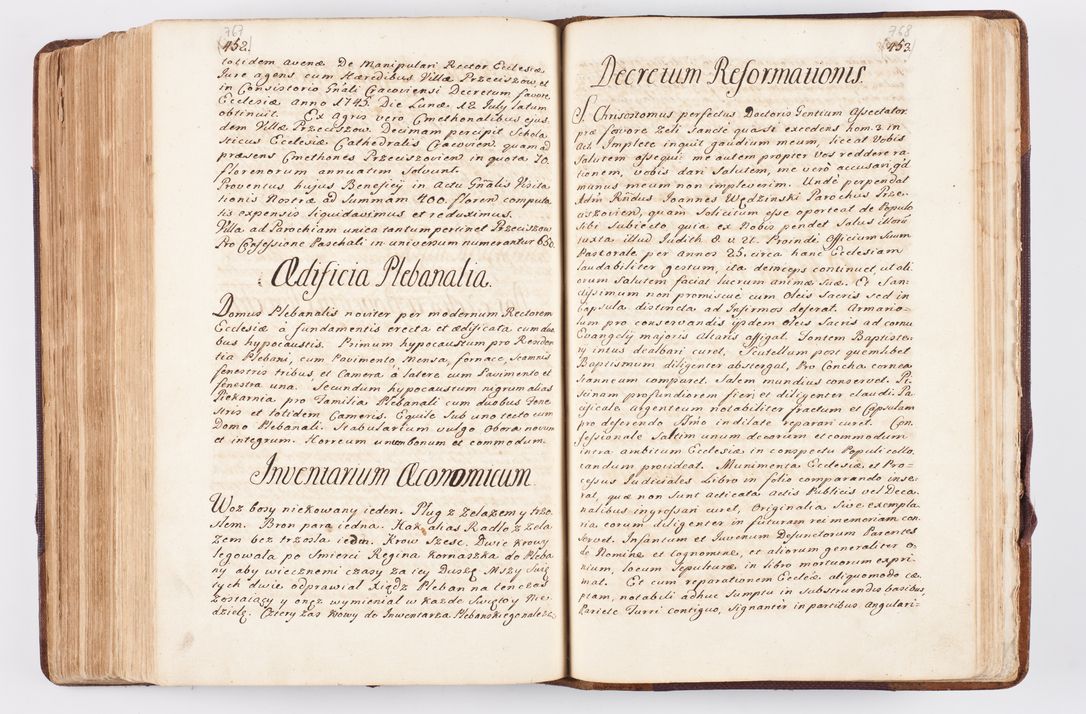 767
452.
totidem avenæ De Manipulari Rector Ecclesiæ
Jure agens cum Hæredibus Villæ Przeciszow, et
in Consistorio Gnãli Cracoviensi Decretum favore
Ecclesiæ Anno 1745. Die Lunæ 12 July latum
obtinuit. Ex Agris vero Cmethonalibus ejus-
dem Villæ Przeciszow Decimam percipit Schola
sticus Ecclesiæ Cathedralis Cracovien. quam ad
præsens Cmethones Przeciszovien in quota 70.
florenorum annuatim solvunt.
Proventus hujus Beneficÿ in Actu Gnãlis Visita
tionis Nostræ ad Summam 400. floren computa
tis expensis liquidavimus et reduximus.
Villa ad Parochiam unica tantum pertinet Przeciszow
Pro Confessione Paschali in universum numerantur 650
Ædificia Plebanalia.
Domus Plebanalis noviter per modernum Rectorem
Ecclesiæ à fundamentis erecta et ædificata cum dua
bus hypocaustis. Primum hypocaustum pro Residen
tia Plebani, cum Pavimento Mensa, fornace, Scamnis
fenestris tribus, et Camera à latere cum Pavimento et
fenestra una. Secundum hypocaustum nigrum alias
Piekarnia pro Familia Plebanali cum duobus Fene
stris et totidem Cameris. Equile Sub uno tecto cum
Domo Plebanali. Stabularium vulgo Obora novum
et integrum. Horreum unum bonum et commodum.
Inventarium Œconomicum
Woz bosy niekowany ieden. Plug z Zelazem y trzo
slem. Bron para iedna. Hak alias Radło z zela
zem bez trzosla ieden. Krow Szesc. Dwie krowy
legowala po Smierci Regina Kornaszka do Pleba
ny aby wiecznemi czasy za iey Duszę Mszy Swię
tych dwie odprawial Xiądz Pleban na ten czas
zostaiący y onęż wymieniał w kazde Swięto y Nie
dzielę. Cztery zas krowy do Inwentarza Plebanskiego należą
768
453.
Decretum Reformationis.
S. Chrisostomus perfectus Doctoris Gentium Assectator
præ favore Zeli Sancte quasi excedens hom. 3. in
Act. Implete inquit gaudium meum, liceat Vobis
Salutem assequi: me autem propter Vos reddere ra
tionem, vobis dari Salutem, me verò accusari qd
munus meum non impleverim. Unde perpendat
Adm Rñdus Joannes Wędzinski Parochus Prze-
ciszovien, quam Solicitum esse oporteat de Populo
Sibi Subiecto quia ex Nobis pendet Salus illorũ
juxta illud Judith 8. v. 21. Proindè Officium Suum
Pastorale per annos 25. circa hanc Ecclesiam
laudabiliter gestum, ita deinceps continuet, ut ali-
orum Salutem faciat lucrum animæ Suæ. Et San-
ctissimum non promiscue cum Oleis Sacris sed in
Capsula distincta ad Infirmos deferat. Armario-
lum pro conservandis ipsdem Oleis Sacris ad cornu
Evangelÿ majoris Altaris affigat. Fontem Baptiste-
rÿ intus dealbari curet, Scutellum post quemlibet
Baptismum diligenter abstergat, Pro Concha cornea
stanneam comparet. Salem mundius conservet. Pi-
scinam profundiorem fieri et diligenter claudi. Pa
cificale argenteum notabiliter fractum et Capsulam
pro deferendo Ssmo indilate reparari curet. Con-
fessionale Saltem unum decorum et commodum
intra ambitum Ecclesiæ in conspectu Populi collo
candum provideat. Munimenta Ecclesiæ et Pro-
cessus Judiciales Libro in folio comparando inse-
rat, quæ non Sunt acticata Actis Publicis vel Deca
nalibus ingrossari curet, Originalia Sive exempla
ria eorum diligenter in futuram rei memoriam con
servet. Infantum et Juvenum Defunctorum Parentes
de Nomine et Cognomine, et aliorum generaliter o-
mnium, locum Sepulturæ in libro mortuorum expri-
mat. Et cum reparationem Eccleiæ aliquomodo cæ
ptam, notabili adhuc Sumptu in Substruendis basibus,
Pariete Turri contiguo, Signanter in partibus angulari=